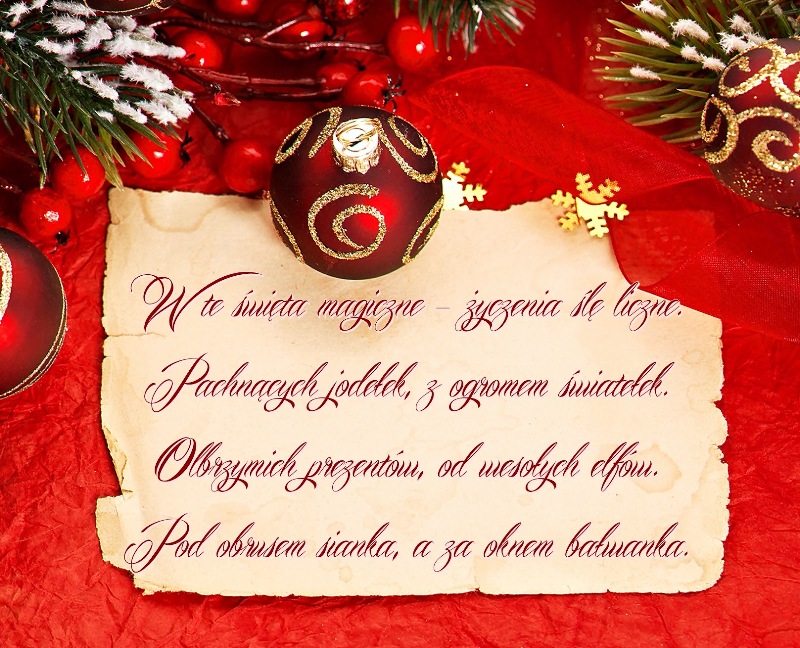 W te święta magiczne – życzenia ślę liczne.
Pachnących jodełek, z ogromem światełek.
Olbrzymich prezentów, od wesołych elfów.
Pod obrusem sianka, a za oknem bałwanka.